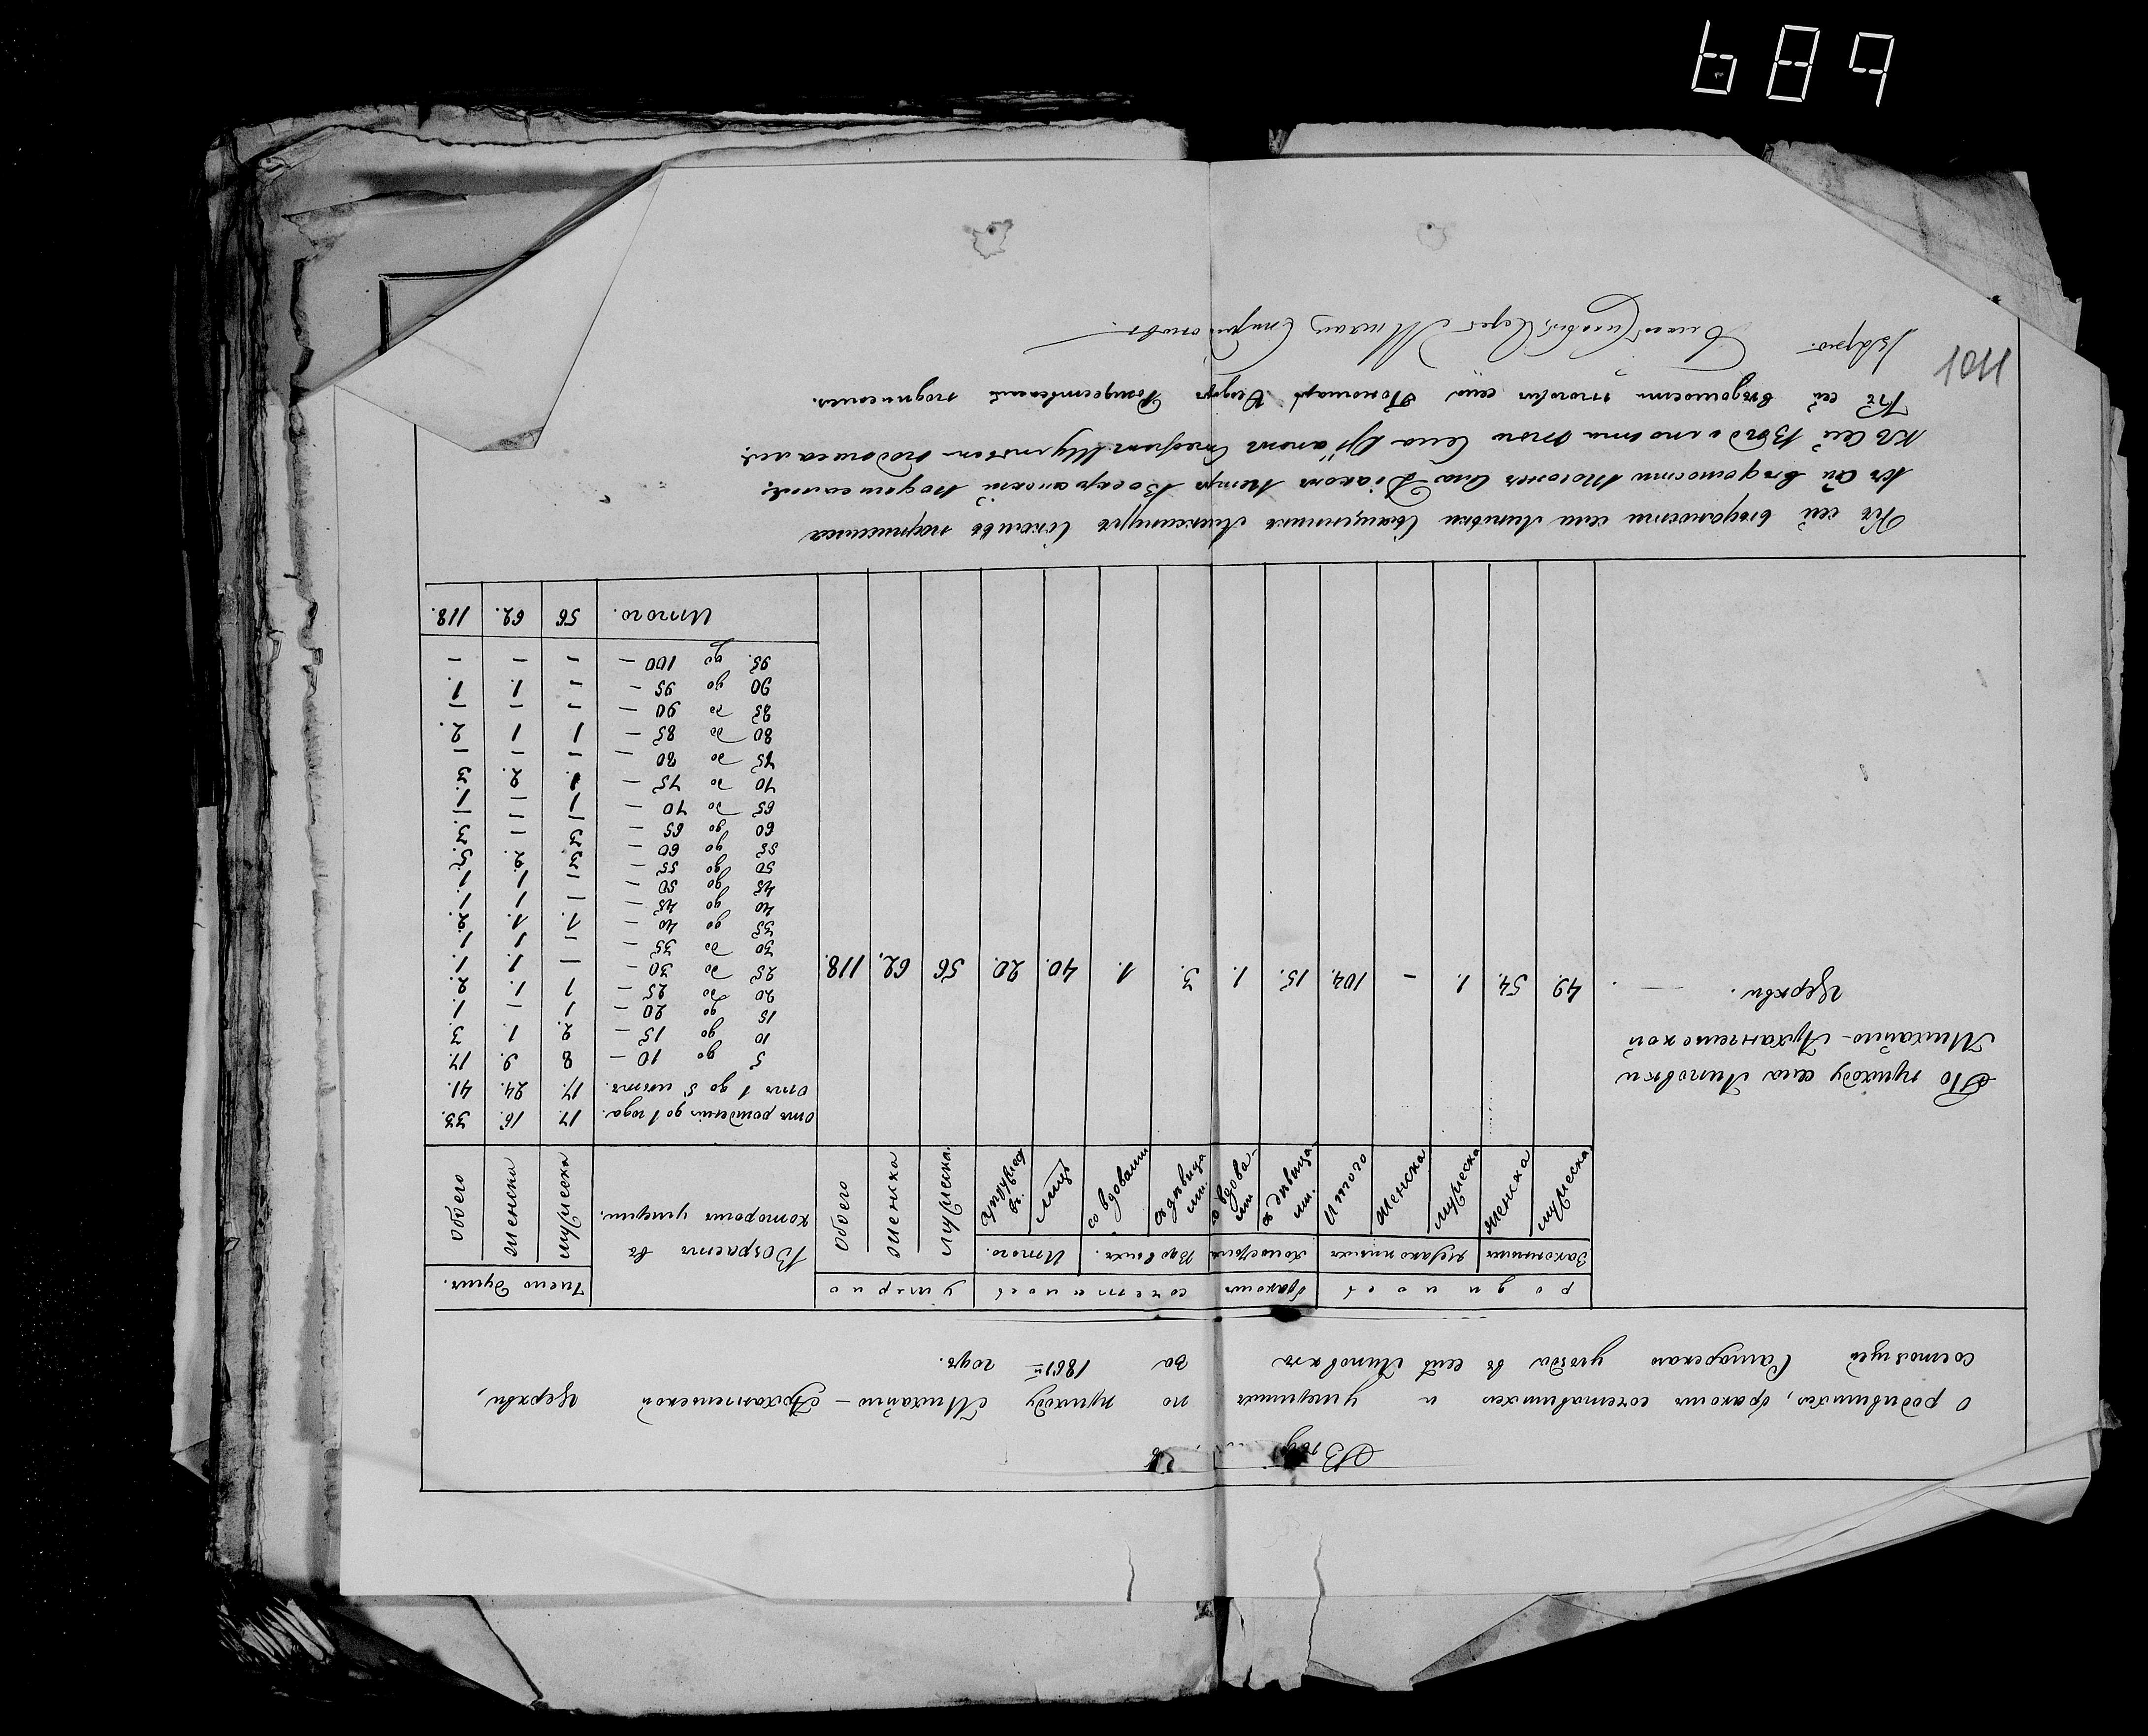 689
Вѣд
О родившихся, бракомъ сочетавшихся и умершихъ по приходу Михайло-Архангельской церкви,
состоящей Самарскаго уѣзда въ селѣ Липовкѣ за 1861й годъ.
родилось
бракомъ сочеталось
умерло
Возрастъ въ которомъ умерли.
Число душъ.
Законныхъ
Незаконныхъ
Холостыхъ
Вдовыхъ.
Итого.
мужеска
женска
мужеска
женска
Итого
съ дѣвицами.
со вдовами
съ дѣвицами.
со вдовами
лицъ
супружествъ.
мужеска.
женска
обоего
мужеска
женска
обоего
По приходу села Липовки
Михайло-Архангельской
Церкви.
49. 54. 1. - 104. 15. 1. 3. 1. 40. 20. 56 62. 118.
отъ рожденія до 1 года. 17. 16. 33.
отъ 1 до 5 лѣтъ. 17. 24. 41.
5 до 10 - 8 9. 17.
10 до 15 - 2. 1. 3.
15 до 20 - 1 - 1.
20 до 25 - 1 1. 2.
25 до 30 - - 1. 1.
30 до 35 - - 1. 1.
35 до 40 - 1. 1. 2.
40 до 45 - - 1. 1.
45 до 50 - - 1. 1.
50 до 55 - 3. 2. 5.
55 до 60 - 3. - 3.
60 до 65 -
65 до 70 - 1 - 1.
70 до 75 - 1. 2. 3.
75 до 80 - - - -
80 до 85 - 1 1 2.
85 до 90 - - - -
90 до 95 - - 1. 1.
95. до 100 - - - -
Итого. 56 62. 118.
Къ сей вѣдомости села Липовки Священникъ Александръ Соколовъ подписался
Къ сей вѣдомости тогожъ села Діаконъ Петръ Воскранскій подписался.
Къ сей Вѣдомости того села Дьячокъ Стефанъ подписался.
Къ сей вѣдомости тогоже села Пономарь Ѳедоръ Рождественскій подписался.
1011